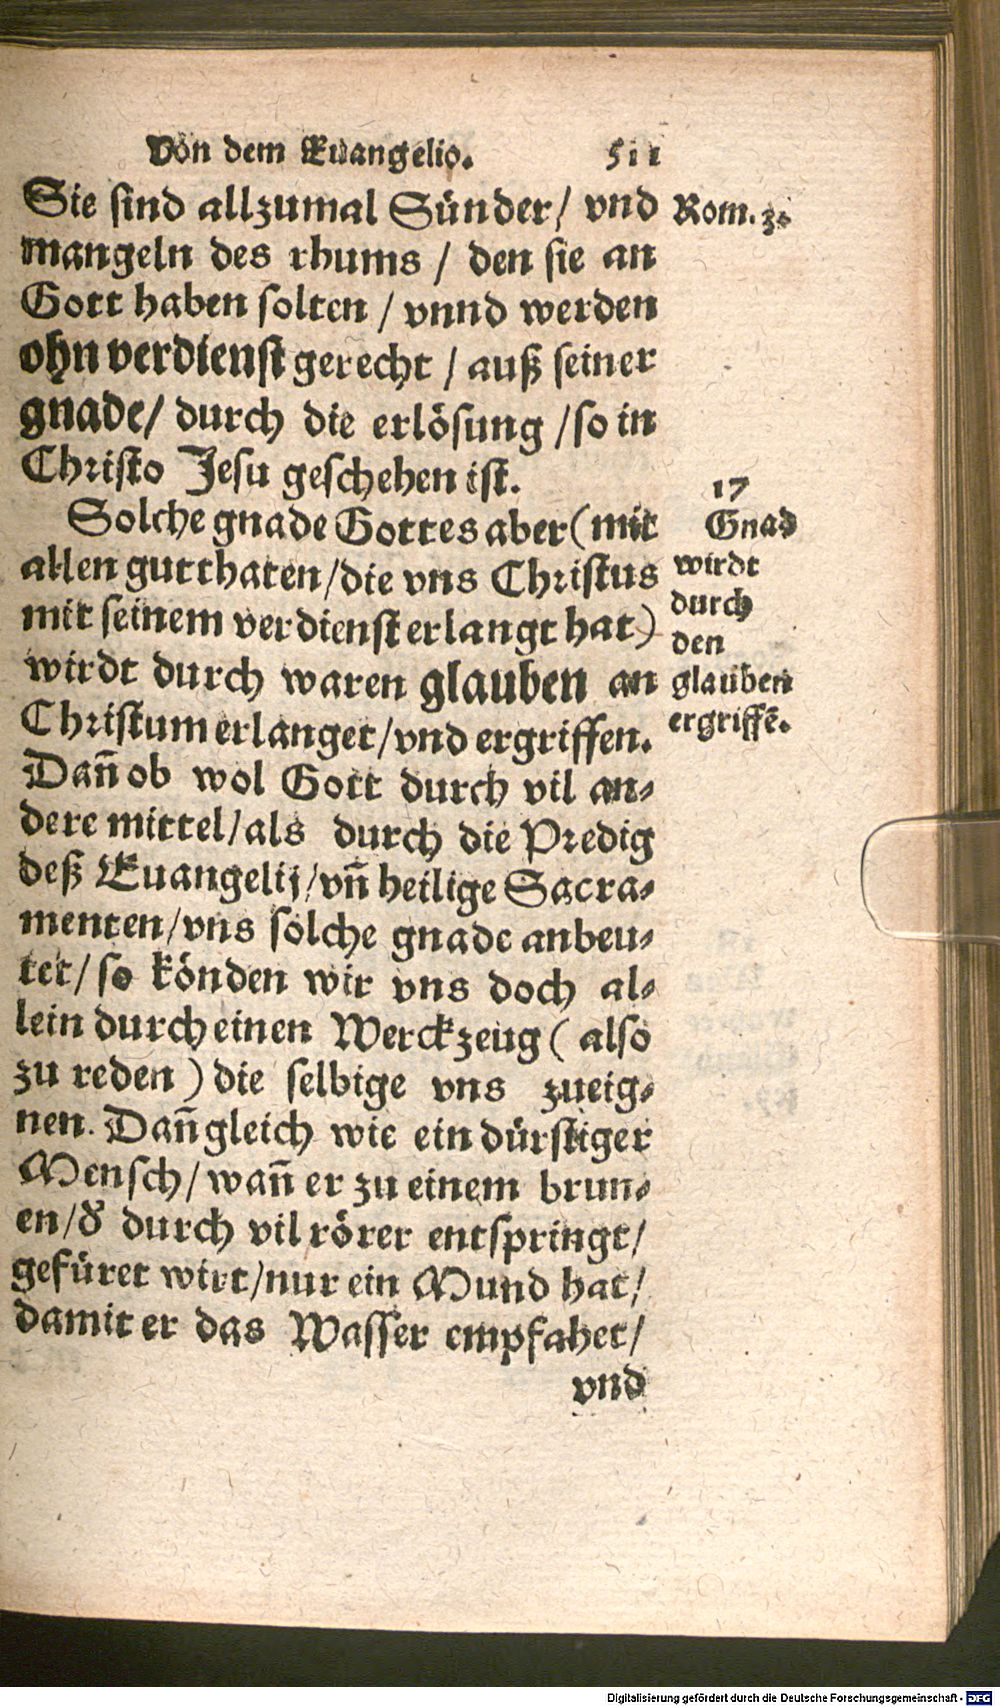 Von dem Euangelio. 511
Sie sind allzumal Sünder/ vnd
mangeln des rhums / den sie an
Gott haben solten / vnnd werden
ohn verdienst gerecht / auß seiner
gnade/ durch die erlösung /so in
Christo Jesu geschehen ist.
Solche gnade Gottes aber (mit
allen gutthaten/die vns Christus
mit seinem verdienst erlangt hat)
wirdt durch waren glauben an
Christum erlanget/vnd ergriffen.
Dañ ob wol Gott durch vil an-
dere mittel/als durch die Predig
deß Euangelij/vñ heilige Sacra-
menten/vns solche gnade anbeu-
tet/so könden wir vns doch al-
lein durch einen Werckzeug ( also
zu reden ) die selbige vns zueig-
nen. Dañ gleich wie ein dürstiger
Mensch/wañ er zu einem brun-
en/d' durch vil rörer entspringt/
gefüret wirt/nur ein Mund hat/
damit er das Wasser empfahet/
vnd
Rom. 3.
17
Gnad
wirdt
durch
den
glauben
ergriffē.
Digitalisierung gefördert durch die Deutsche Forschungsgemeinschaft - DFG